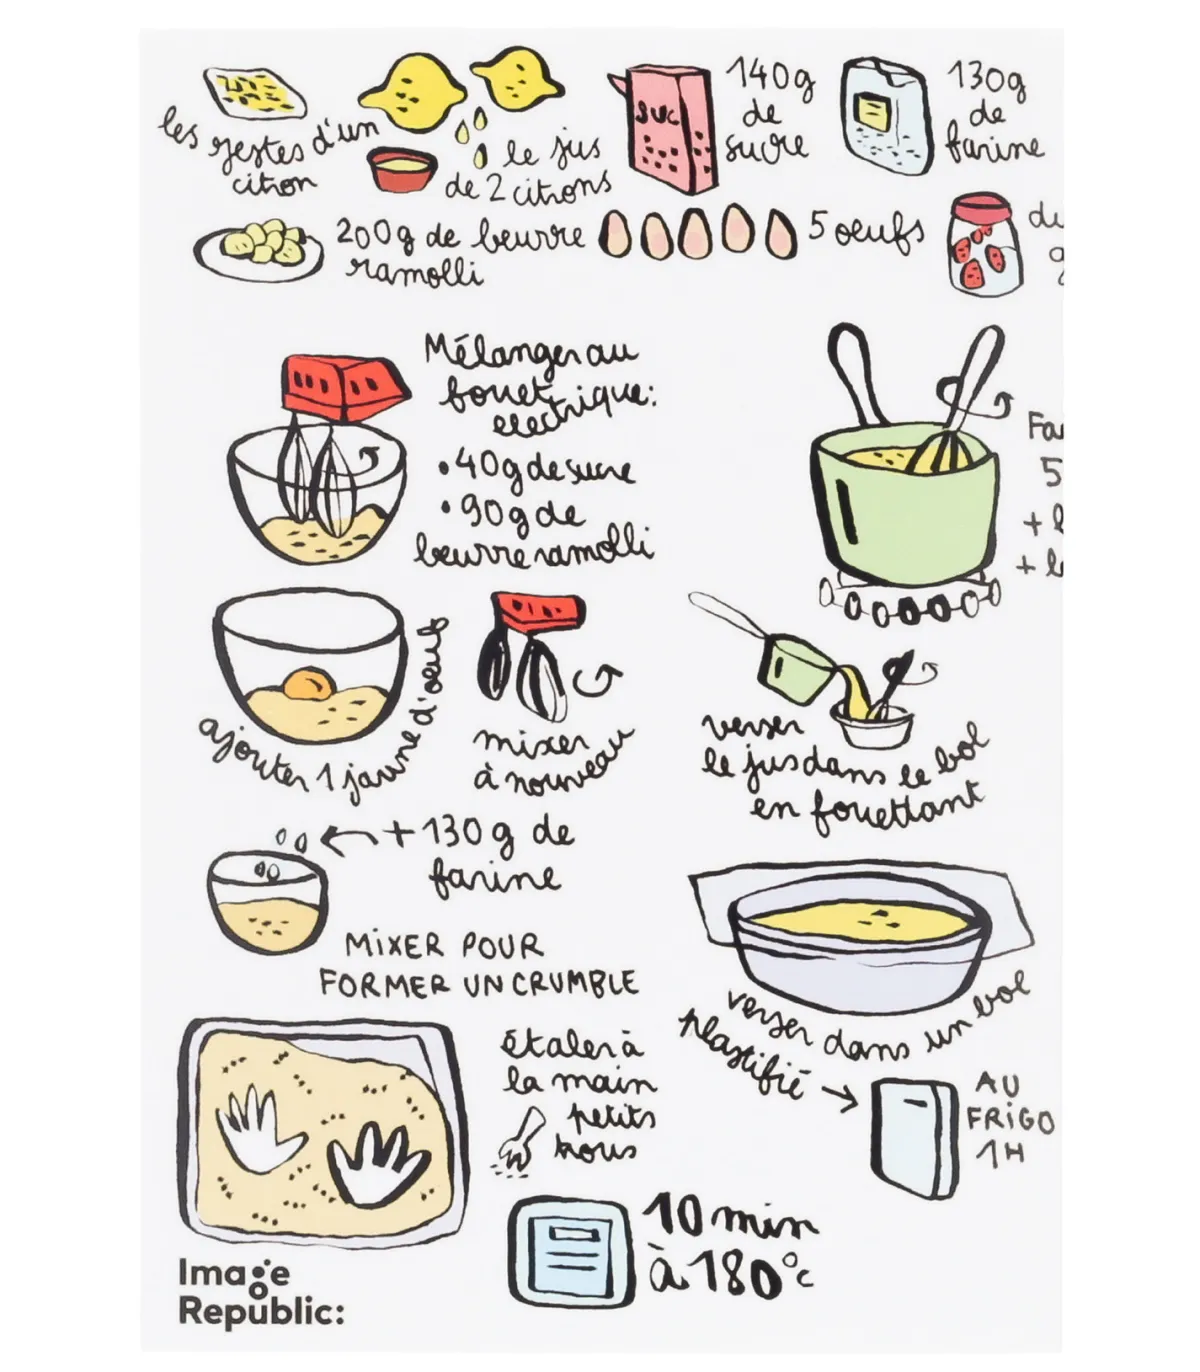 les zestes d'un
citron
le jus
de 2 citrons
SUC
140g
de
sucre
130g
de
farine
200g de beurre
ramolli
5 oeufs
Mélanger au
fouet
electrique:
• 40g de sucre
• 90g de
beurre ramolli
5
ajouter 1 jaune d'oeuf
mixer
à nouveau
verser
le jus dans le bol
en fouettant
+130g de
farine
MIXER POUR
FORMER UN CRUMBLE
verser dans un bol
plastifié
AU
FRIGO
1H
étaler à
la main
petits
trous
10 min
à 180°c
Image
Republic: